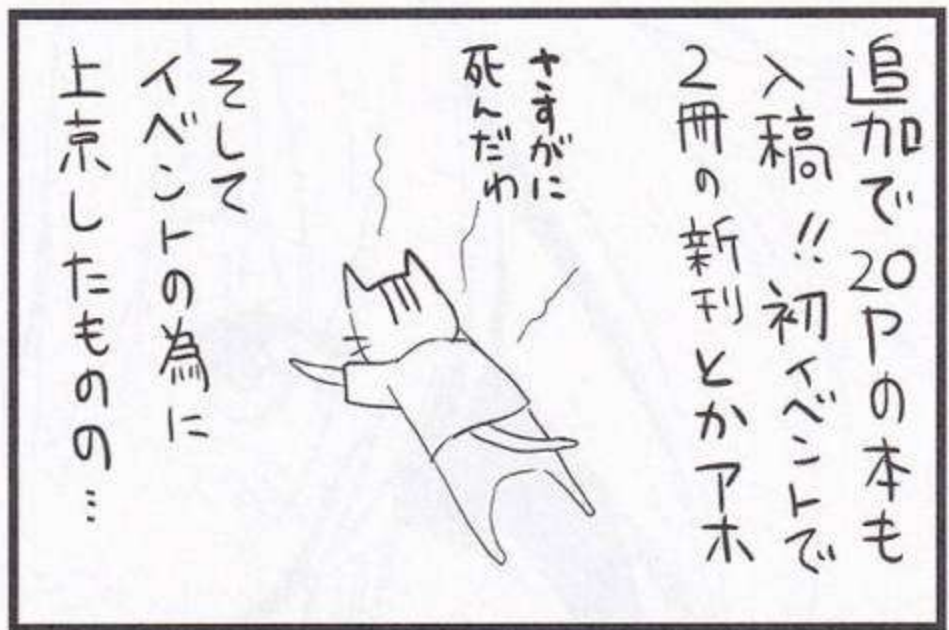 追加で20Pの本も
入稿!!初イベントで
2冊の新刊とかアホ
さすがに
死んだわ
そして
イベントの為に
上京したものの…